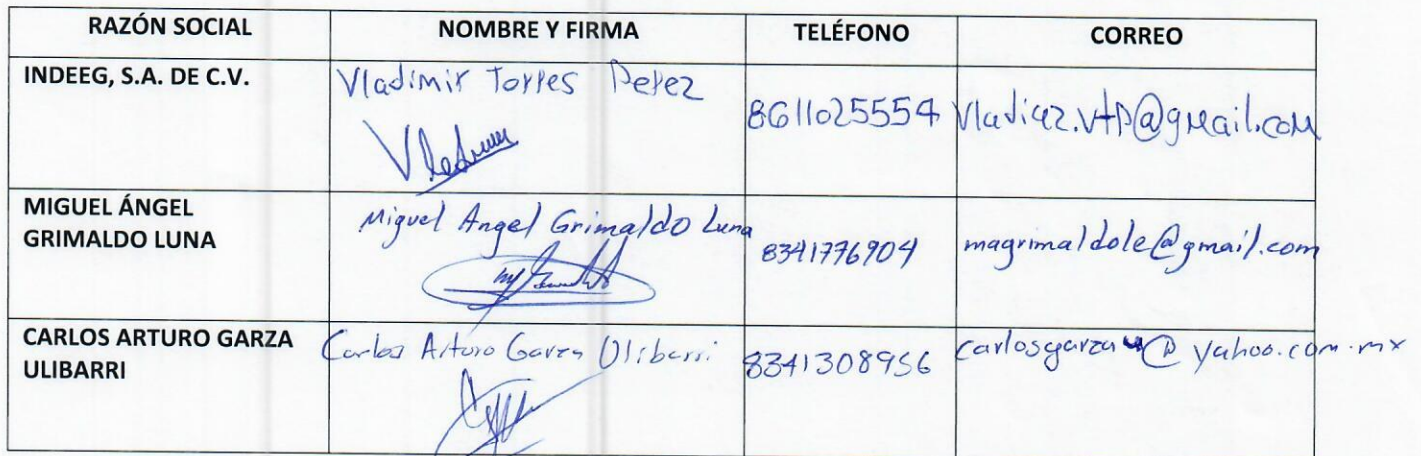 RAZÓN SOCIAL NOMBRE Y FIRMA TELÉFONO CORREO
INDEEG, S.A. DE C.V. Vladimir Torres Perez 8611025554
MIGUEL ÁNGEL
GRIMALDO LUNA Miguel Angel Grimaldo Luna 8341776904 magrimaldole@gmail.com
CARLOS ARTURO GARZA
ULIBARRI Carlos Arturo Garza Ulibarri 8341308956